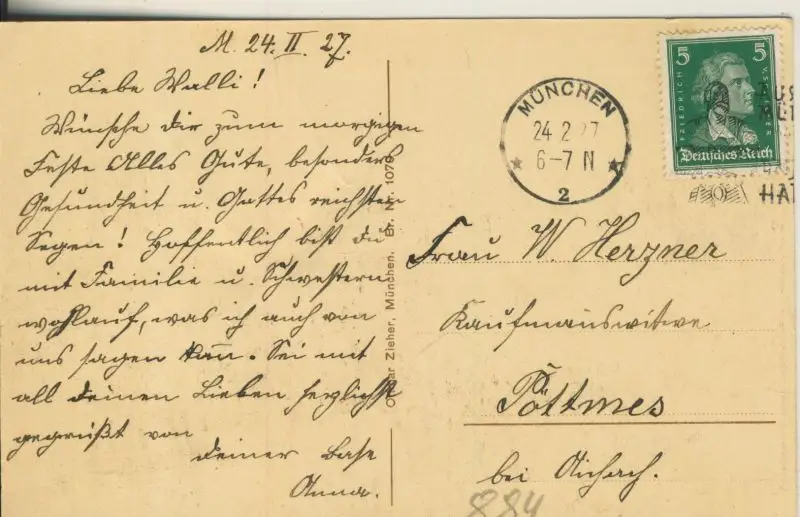 M. 24. II. 27.
Liebe Walli!
Wünsche dir zum morgigen
Feste Alles Gute, besonders
Gesundheit u. Gottes reichsten
Segen! Hoffentlich bist du
mit Familie u. Schwestern
wohlauf, was ich auch von
uns sagen kann. Sei mit
all deinen Lieben herzlichst
gegrüßt von
deiner Base
Anna.
Ottmar Zieher, München. Br. Nr. 1079
MÜNCHEN
24.2.27
6-7 N
2
5 5
FRIEDRICH V. SCHILLER
Deutsches Reich
HAT
Frau W. Herzner
Kaufmannswitwe
Pöttmes
bei Aichach.
884